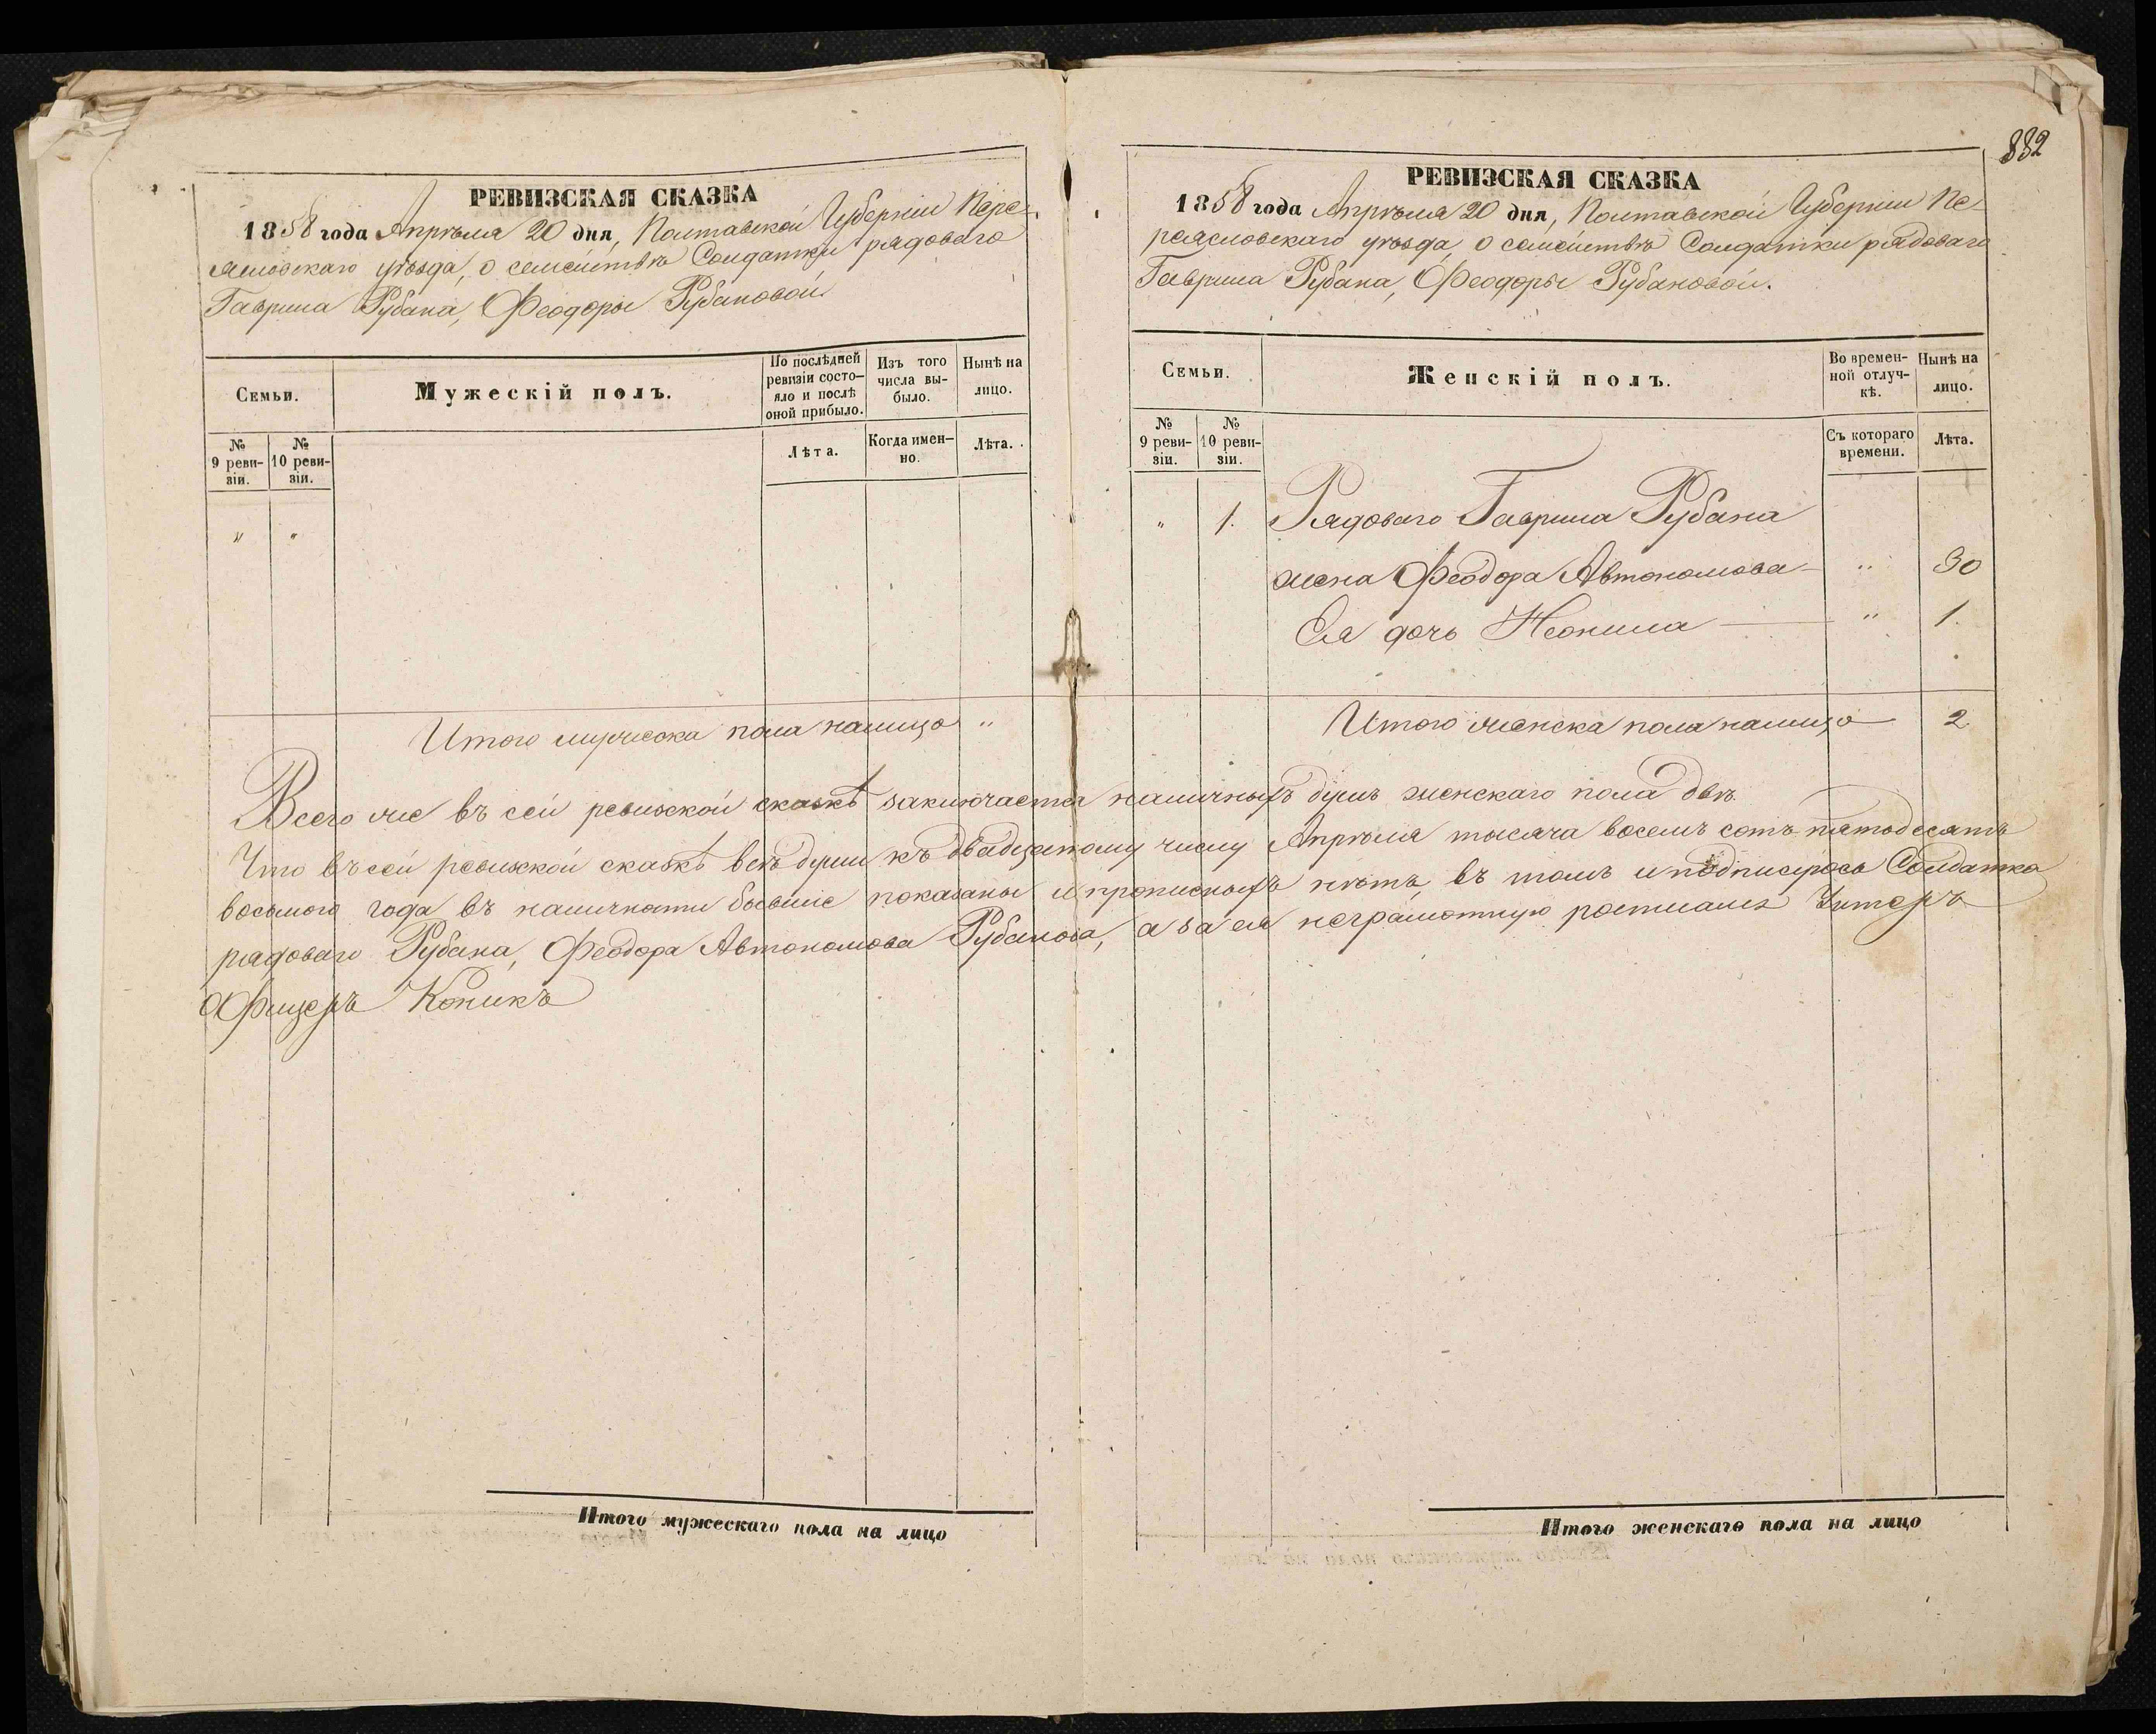 882
РЕВИЗСКАЯ СКАЗКА
1858 года Апрѣля 20 дня, Полтавской Губерніи Пере-
яславскаго уѣзда, о семействѣ Солдатки рядоваго
Гаврила Рубана, Феодоры Рубановой.
Семьи.
Мужескій полъ.
По послѣдней
ревизіи состо-
яло и послѣ
оной прибыло.
Изъ того
числа вы-
было.
Нынѣ на
лицо.
№
9 реви-
зіи.
№
10 реви-
зіи.
Лѣта.
Когда имен-
но.
Лѣта.
" "
Итого мужеска пола налицо "
РЕВИЗСКАЯ СКАЗКА
1858 года Апрѣля 20 дня, Полтавской Губерніи Пе-
реясловскаго уѣзда, о семействѣ Солдатки рядоваго
Гаврила Рубана, Феодоры Рубановой.
Семьи.
Женскій полъ.
Во времен-
ной отлуч-
кѣ.
Нынѣ на
лицо.
№
9 реви-
зіи.
№
10 реви-
зіи.
Съ котораго
времени.
Лѣта.
" 1. Рядоваго Гаврила Рубана
жена Феодора Автономова " 30
Ея дочь Неонила " 1.
Итого женска пола налицо 2.
Всего же въ сей ревизской сказкѣ заключается наличныхъ душъ женскаго пола двѣ.
Что въ сей ревизской сказкѣ всѣ души къ двадцатому числу Апрѣля тысяча восемъ сотъ пятьдесятъ
восьмого года въ наличности бывшіе показаны и прописныхъ нѣтъ, въ томъ и подписуюсь Солдатка
рядоваго Рубана, Феодора Автономова Рубанова, а за ея неграмотную росписался Унтеръ
Офицеръ Коникъ
Итого мужескаго пола на лицо
Итого женскаго пола на лицо